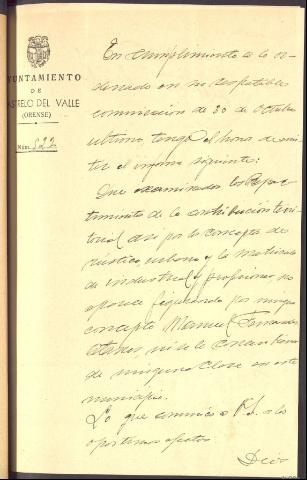 AYUNTAMIENTO
DE
CASTRELO DEL VALLE
(ORENSE)
Núm. 522
En cumplimiento a lo or-
denado en su respetable
comunicación de 30 de Octubre
último, tengo el honor de emi-
tir el informe siguiente:
Que examinados los Repar-
timientos de la contribución terri-
torial, así por los conceptos de
rústica, urbana y la matrícula
de industrial y profesiones, no
aparece figurando por ningun
concepto Manuel Fernandez
ni se le conocen bienes
de ninguna clase en este
municipio.
Lo que comunico a V.S. a los
oportunos efectos.
Dios